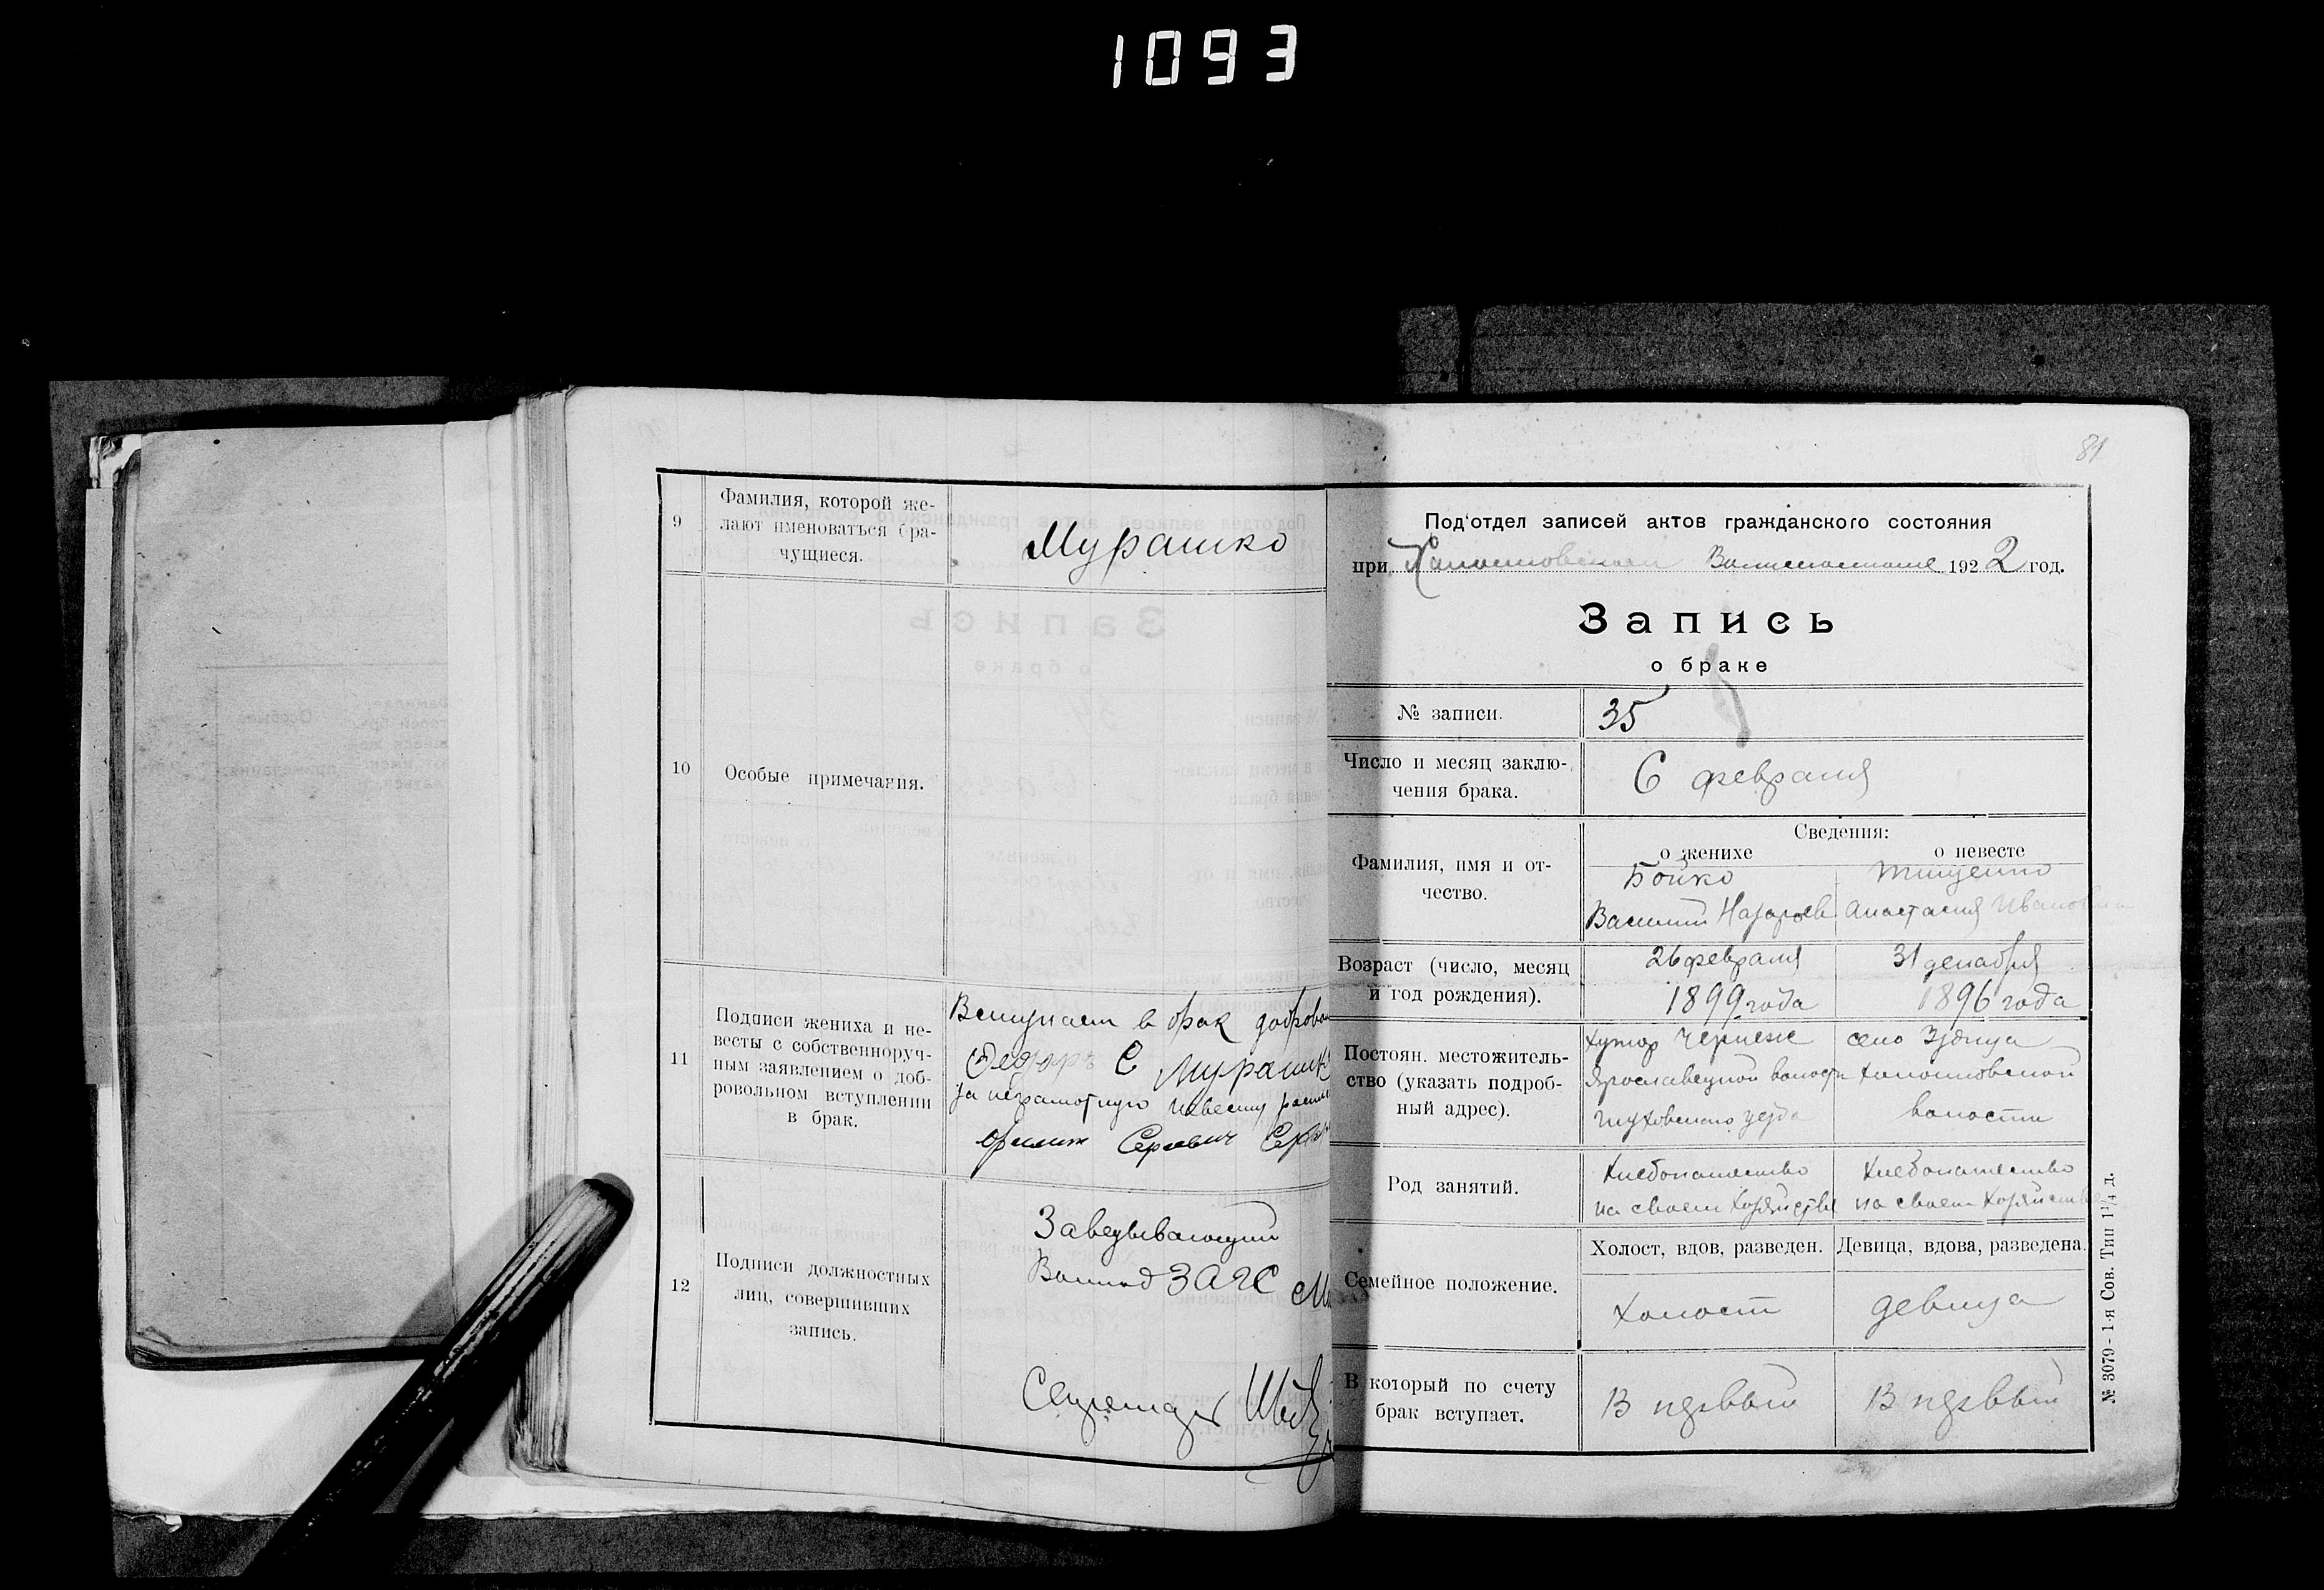 1093
9
Фамилия, которой же-
лают именоваться бра-
чущиеся.
Мурашко
10
Особые примечания.
11
Подписи жениха и не-
весты с собственноруч-
ным заявлением о доб-
ровольном вступлении
в брак.
Вступаем в брак добровол
Федоръ С Мурашк
за неграмотную невесту
Сергевич
12
Подписи должностных
лиц, совершивших
запись.
Заведывающий
ЗАГС
Секретарь
81
Под'отдел записей актов гражданского состояния
при Хапошновском Волисполкоме 1922 год.
Запись
о браке
№ записи.
35
Число и месяц заклю-
чения брака.
6 февраля
Сведения:
о женихе
о невесте
Фамилия, имя и от-
чество.
Бойко
Василий Назаров
Тищенко
Анастасия Ивановна
Возраст (число, месяц
и год рождения).
26 февраля
1899 года
31 декабря
1896 года
Постоян. местожитель-
ство (указать подроб-
ный адрес).
хутор
Ярославецкой волости
Глуховского уезда
село
волости
Род занятий.
Хлебопашество
на своем хозяйстве
Хлебопашество
на своем хозяйстве
Семейное положение.
Холост, вдов, разведен.
Девица, вдова, разведена.
Холост
девица
В который по счету
брак вступает.
В первый
В первый
№ 3079 - 1-я Сов. Тип 1¹/₄ д.